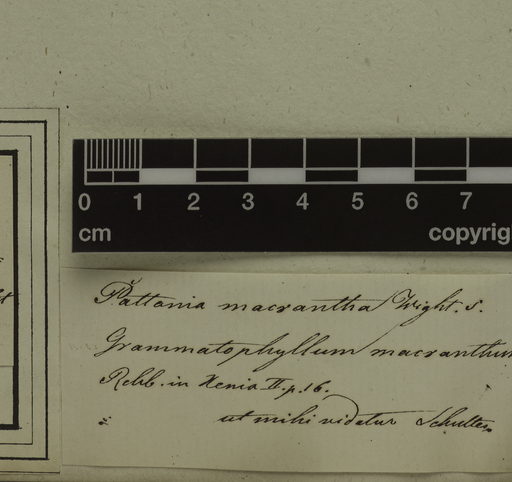 0 1 2 3 4 5 6 7
cm copyrig
Pattonia macrantha Wight. s.
Grammatophyllum macranthum
Rchb. in Xenia II. p. 16.
ut mihi videtur Schultes